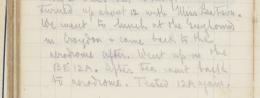 turned up about 12 with Miss
We went to lunch at the Greyhound
in Croydon & came back to the
aerodrome after. Went up in the
BE12A. After tea went back
to aerodrome. Tested 12A again.